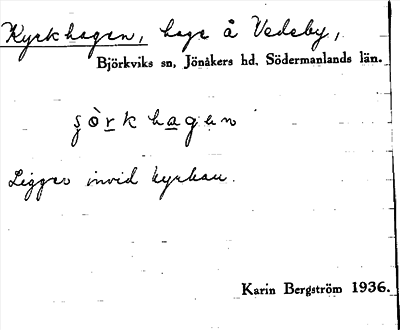 Kyrkhagen, hage å Vedeby,
Björkviks sn, Jönåkers hd, Södermanlands län.
hagen
Ligger invid kyrkan.
Karin Bergström 1936.